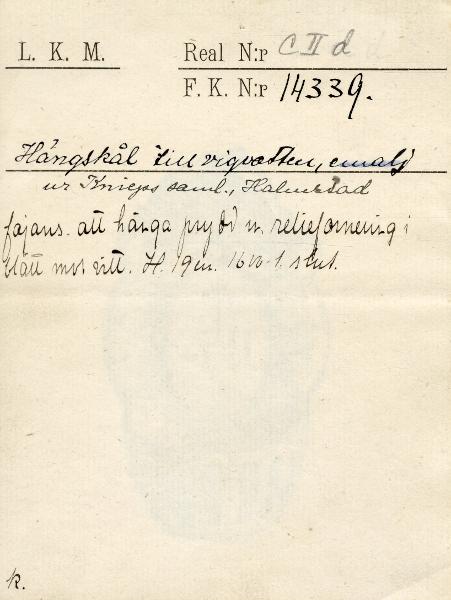 L. K. M. Real N:r C II d
F. K. N:r 14339.
Hängskål till vigvatten, emalj
ur Knieps saml., Halmstad
fajans. att hänga prydd m. reliefornering i
blått mot vitt. H. 19 cm. 1600-t. slut.
k.